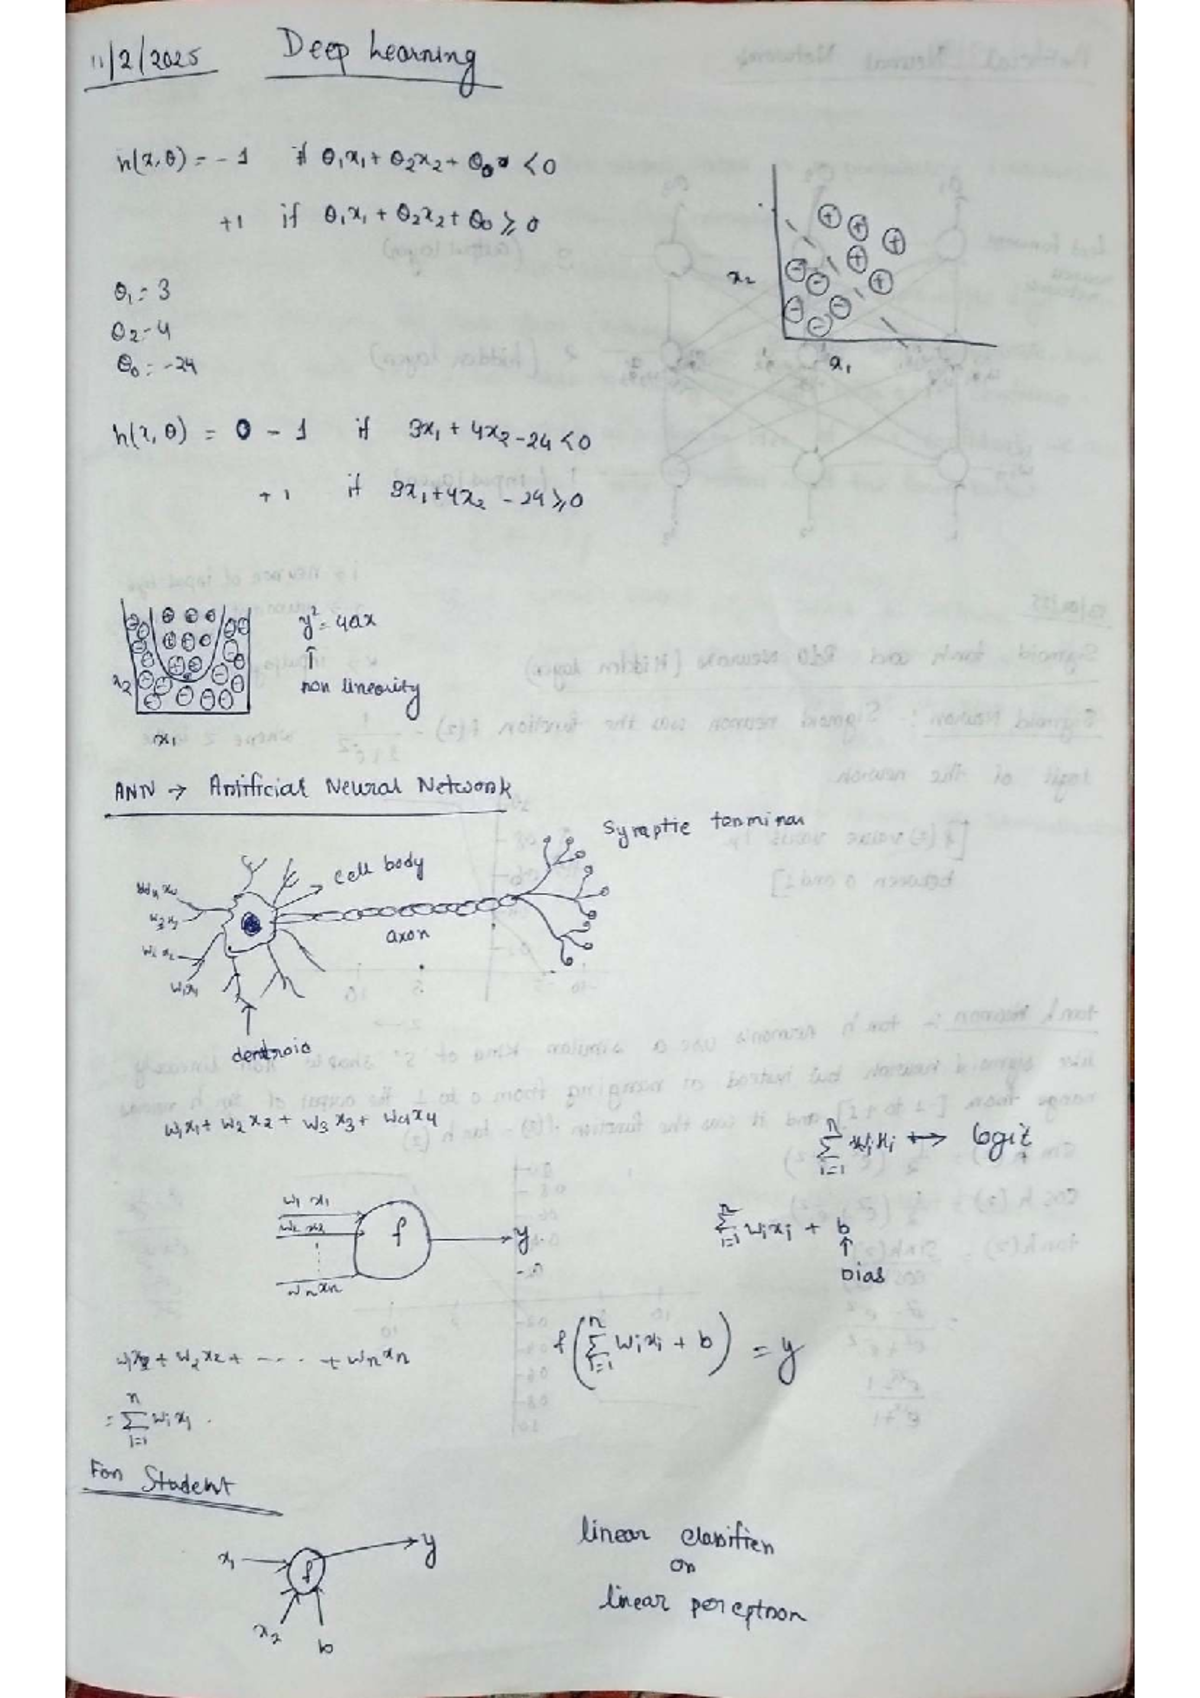 11/2/2025 Deep Learning
h(x,θ) = -1 if θ₁x₁ + θ₂x₂ + θ₀ < 0
+1 if θ₁x₁ + θ₂x₂ + θ₀ ⩾ 0
θ₁ = 3
θ₂ = 4
θ₀ = -24
x₂
x₁
h(x,θ) = -1 if 3x₁ + 4x₂ - 24 < 0
+1 if 3x₁ + 4x₂ - 24 ⩾ 0
y² = 4ax
↑
non linearity
x₂
x₁
ANN → Artificial Neural Network
Synaptic terminas
cell body
w₃x₃
axon
w₂x₂
w₁x₁
dentroid
w₁x₁ + w₂x₂ + w₃x₃ + w₄x₄
n∑i=1 wᵢxᵢ ↔ logit
w₁x₁
w₂x₂
f
y
wₙxₙ
n∑i=1 wᵢxᵢ + b
↑
bias
f(n∑i=1 wᵢxᵢ + b) = y
w₁x₁ + w₂x₂ + ---- + wₙxₙ
= n∑i=1 wᵢxᵢ
For Student
x₁
f
y
x₂
b
linear classifier
or
linear perceptron